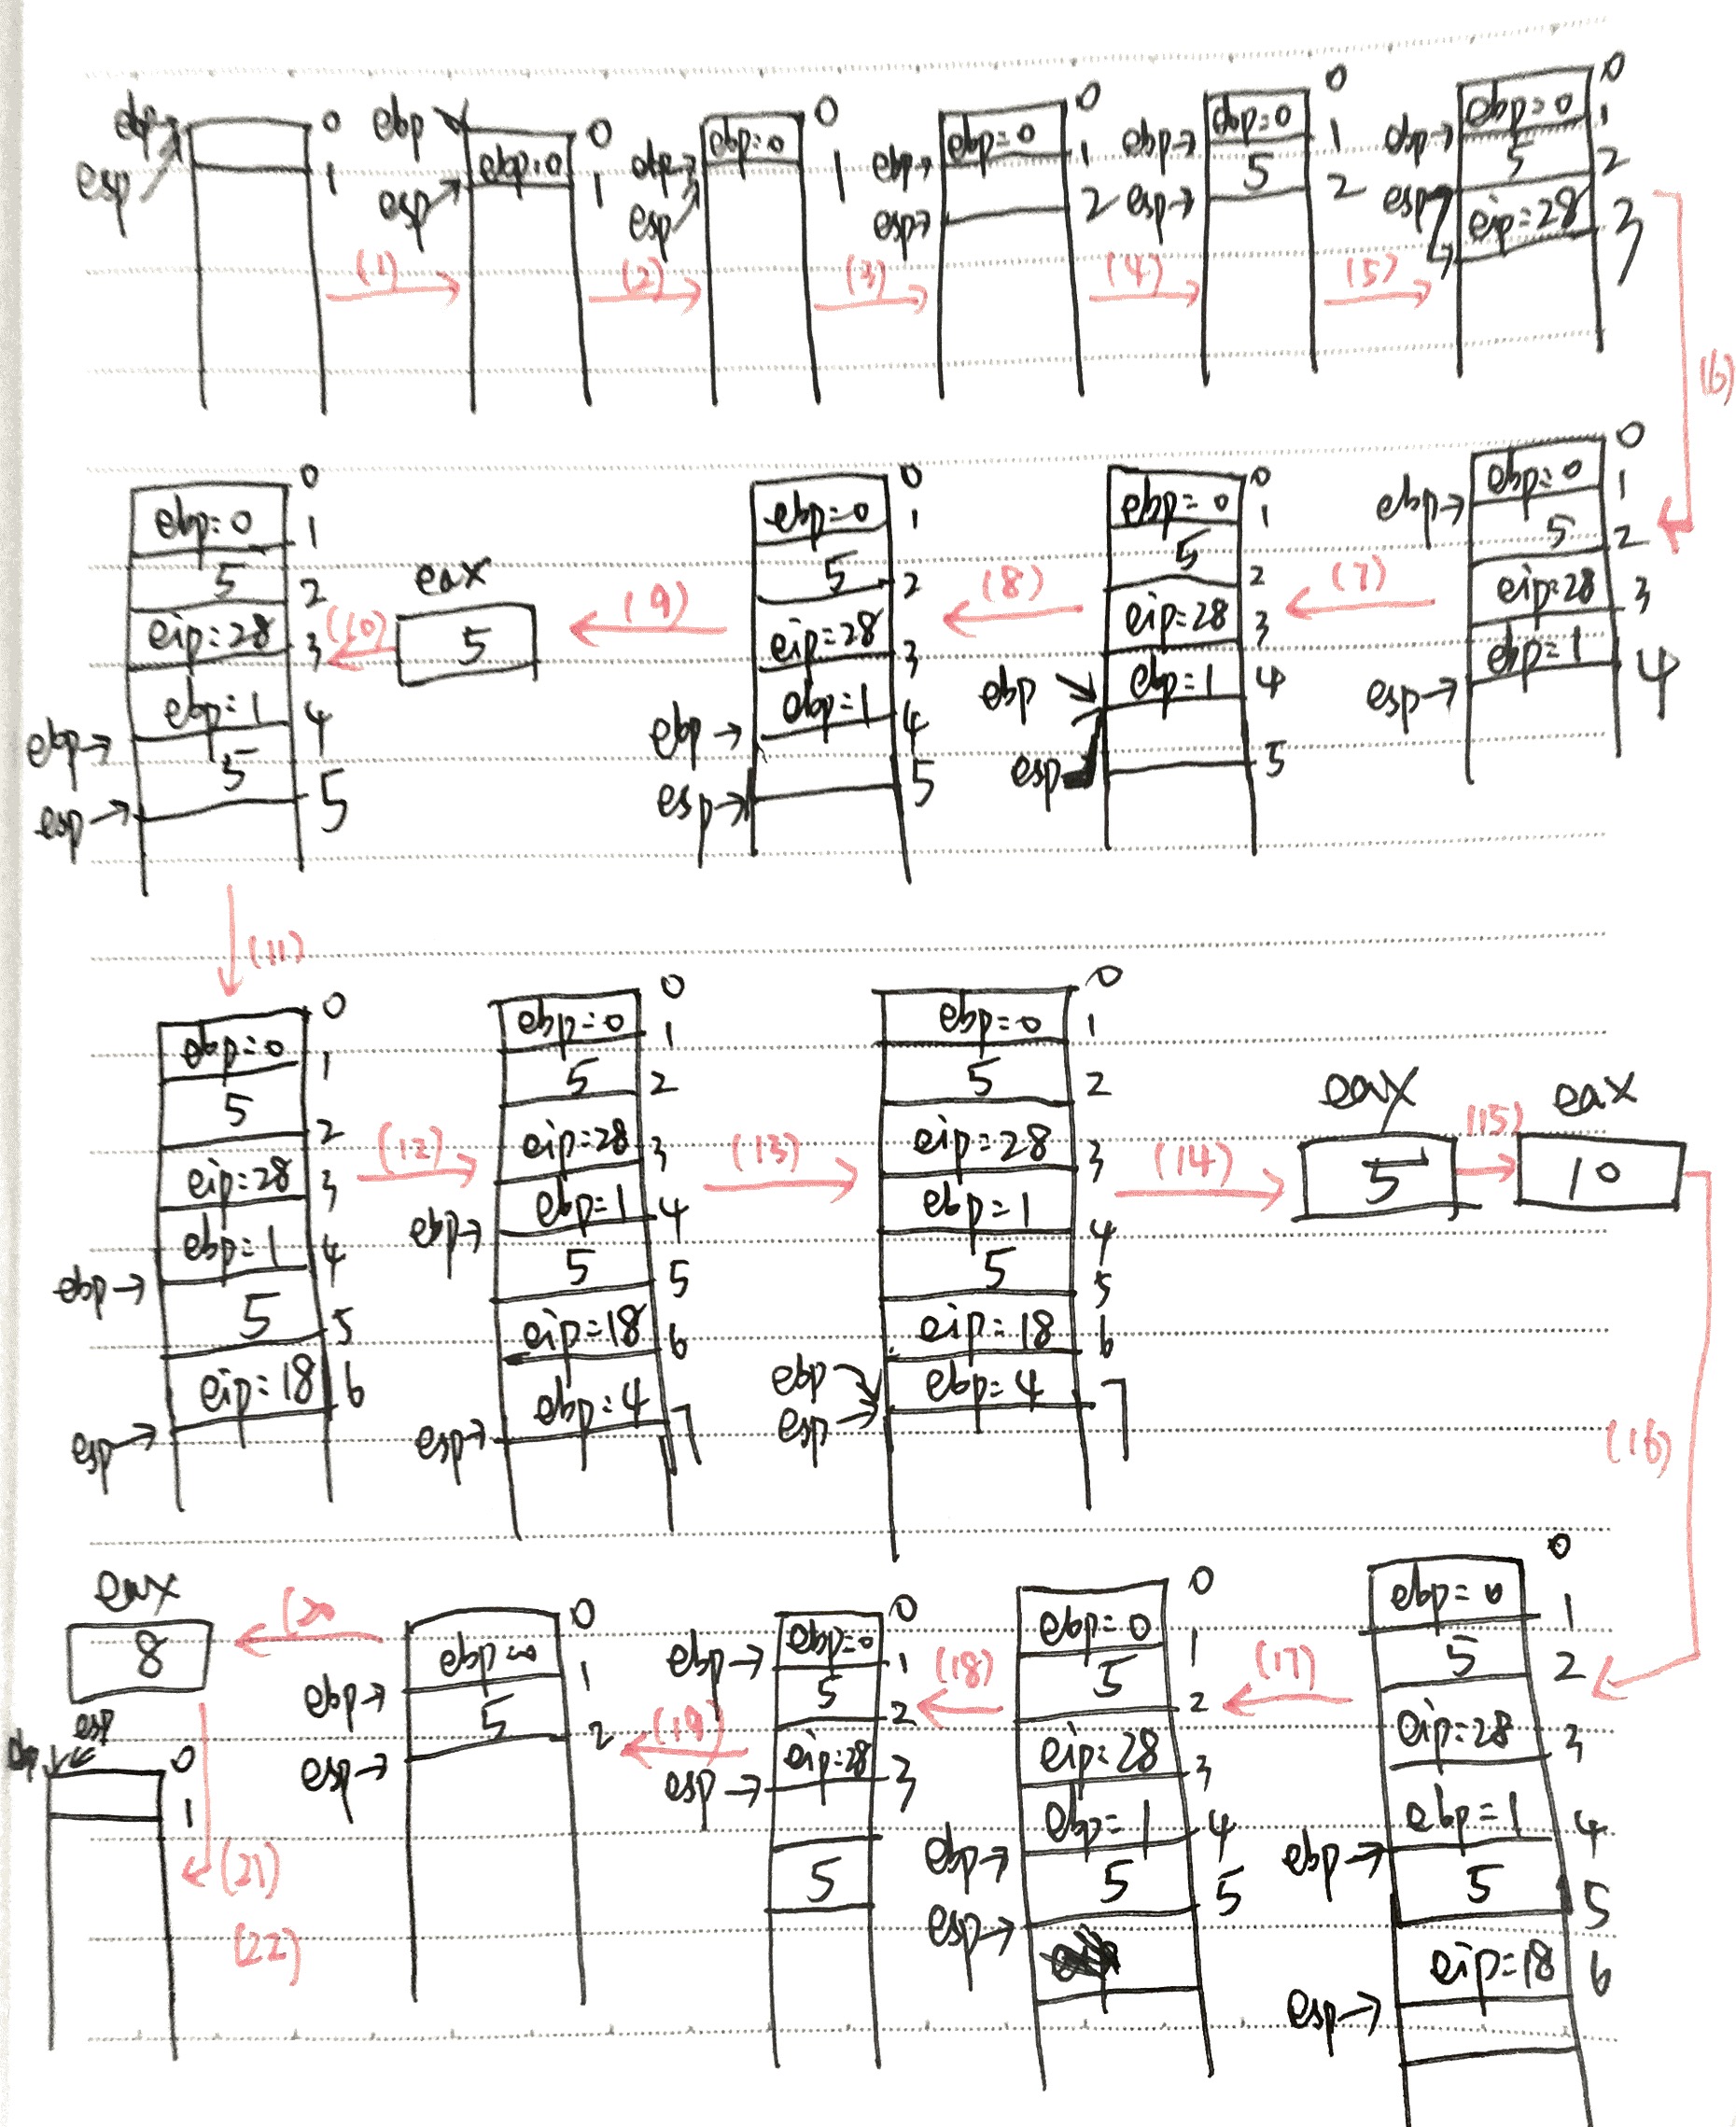 ebp 0
esp 1
(1)
ebp 0
ebp=0
esp 1
(2)
0
ebp=0
ebp 1
esp
(3)
0
ebp=0
ebp 1
esp 2
(4)
0
ebp=0
ebp 1
5
esp 2
(5)
0
ebp=0
ebp 1
5 2
esp
eip=28 3
(6)
0
ebp=0 1
ebp
5 2
eip=28 3
ebp=1 4
esp
(7)
0
ebp=0 1
5 2
eip=28 3
ebp ebp=1 4
esp 5
(8)
0
ebp=0 1
5 2
eip=28 3
ebp=1 4
ebp
esp 5
(9)
eax
5
(10)
0
ebp=0 1
5 2
eip=28 3
ebp=1 4
ebp 5
esp 5
(11)
0
ebp=0 1
5 2
eip=28 3
ebp=1 4
ebp
5 5
eip=18 6
esp
(12)
0
ebp=0 1
5 2
eip=28 3
ebp=1 4
ebp
5 5
eip=18 6
ebp=4 7
esp
(13)
0
ebp=0 1
5 2
eip=28 3
ebp=1 4
5 5
eip=18 6
ebp ebp=4 7
esp
(14)
eax
5
(15)
eax
10
(16)
0
ebp=0 1
5 2
eip=28 3
ebp=1 4
ebp
5 5
eip=18 6
esp
(17)
0
ebp=0 1
5 2
eip=28 3
ebp=1 4
ebp
5 5
esp
(18)
0
ebp=0 1
ebp
5 2
eip=28 3
esp
5
(19)
0
ebp=0 1
ebp
5 2
esp
eax
8
(21)
(22)
ebp esp 0
1